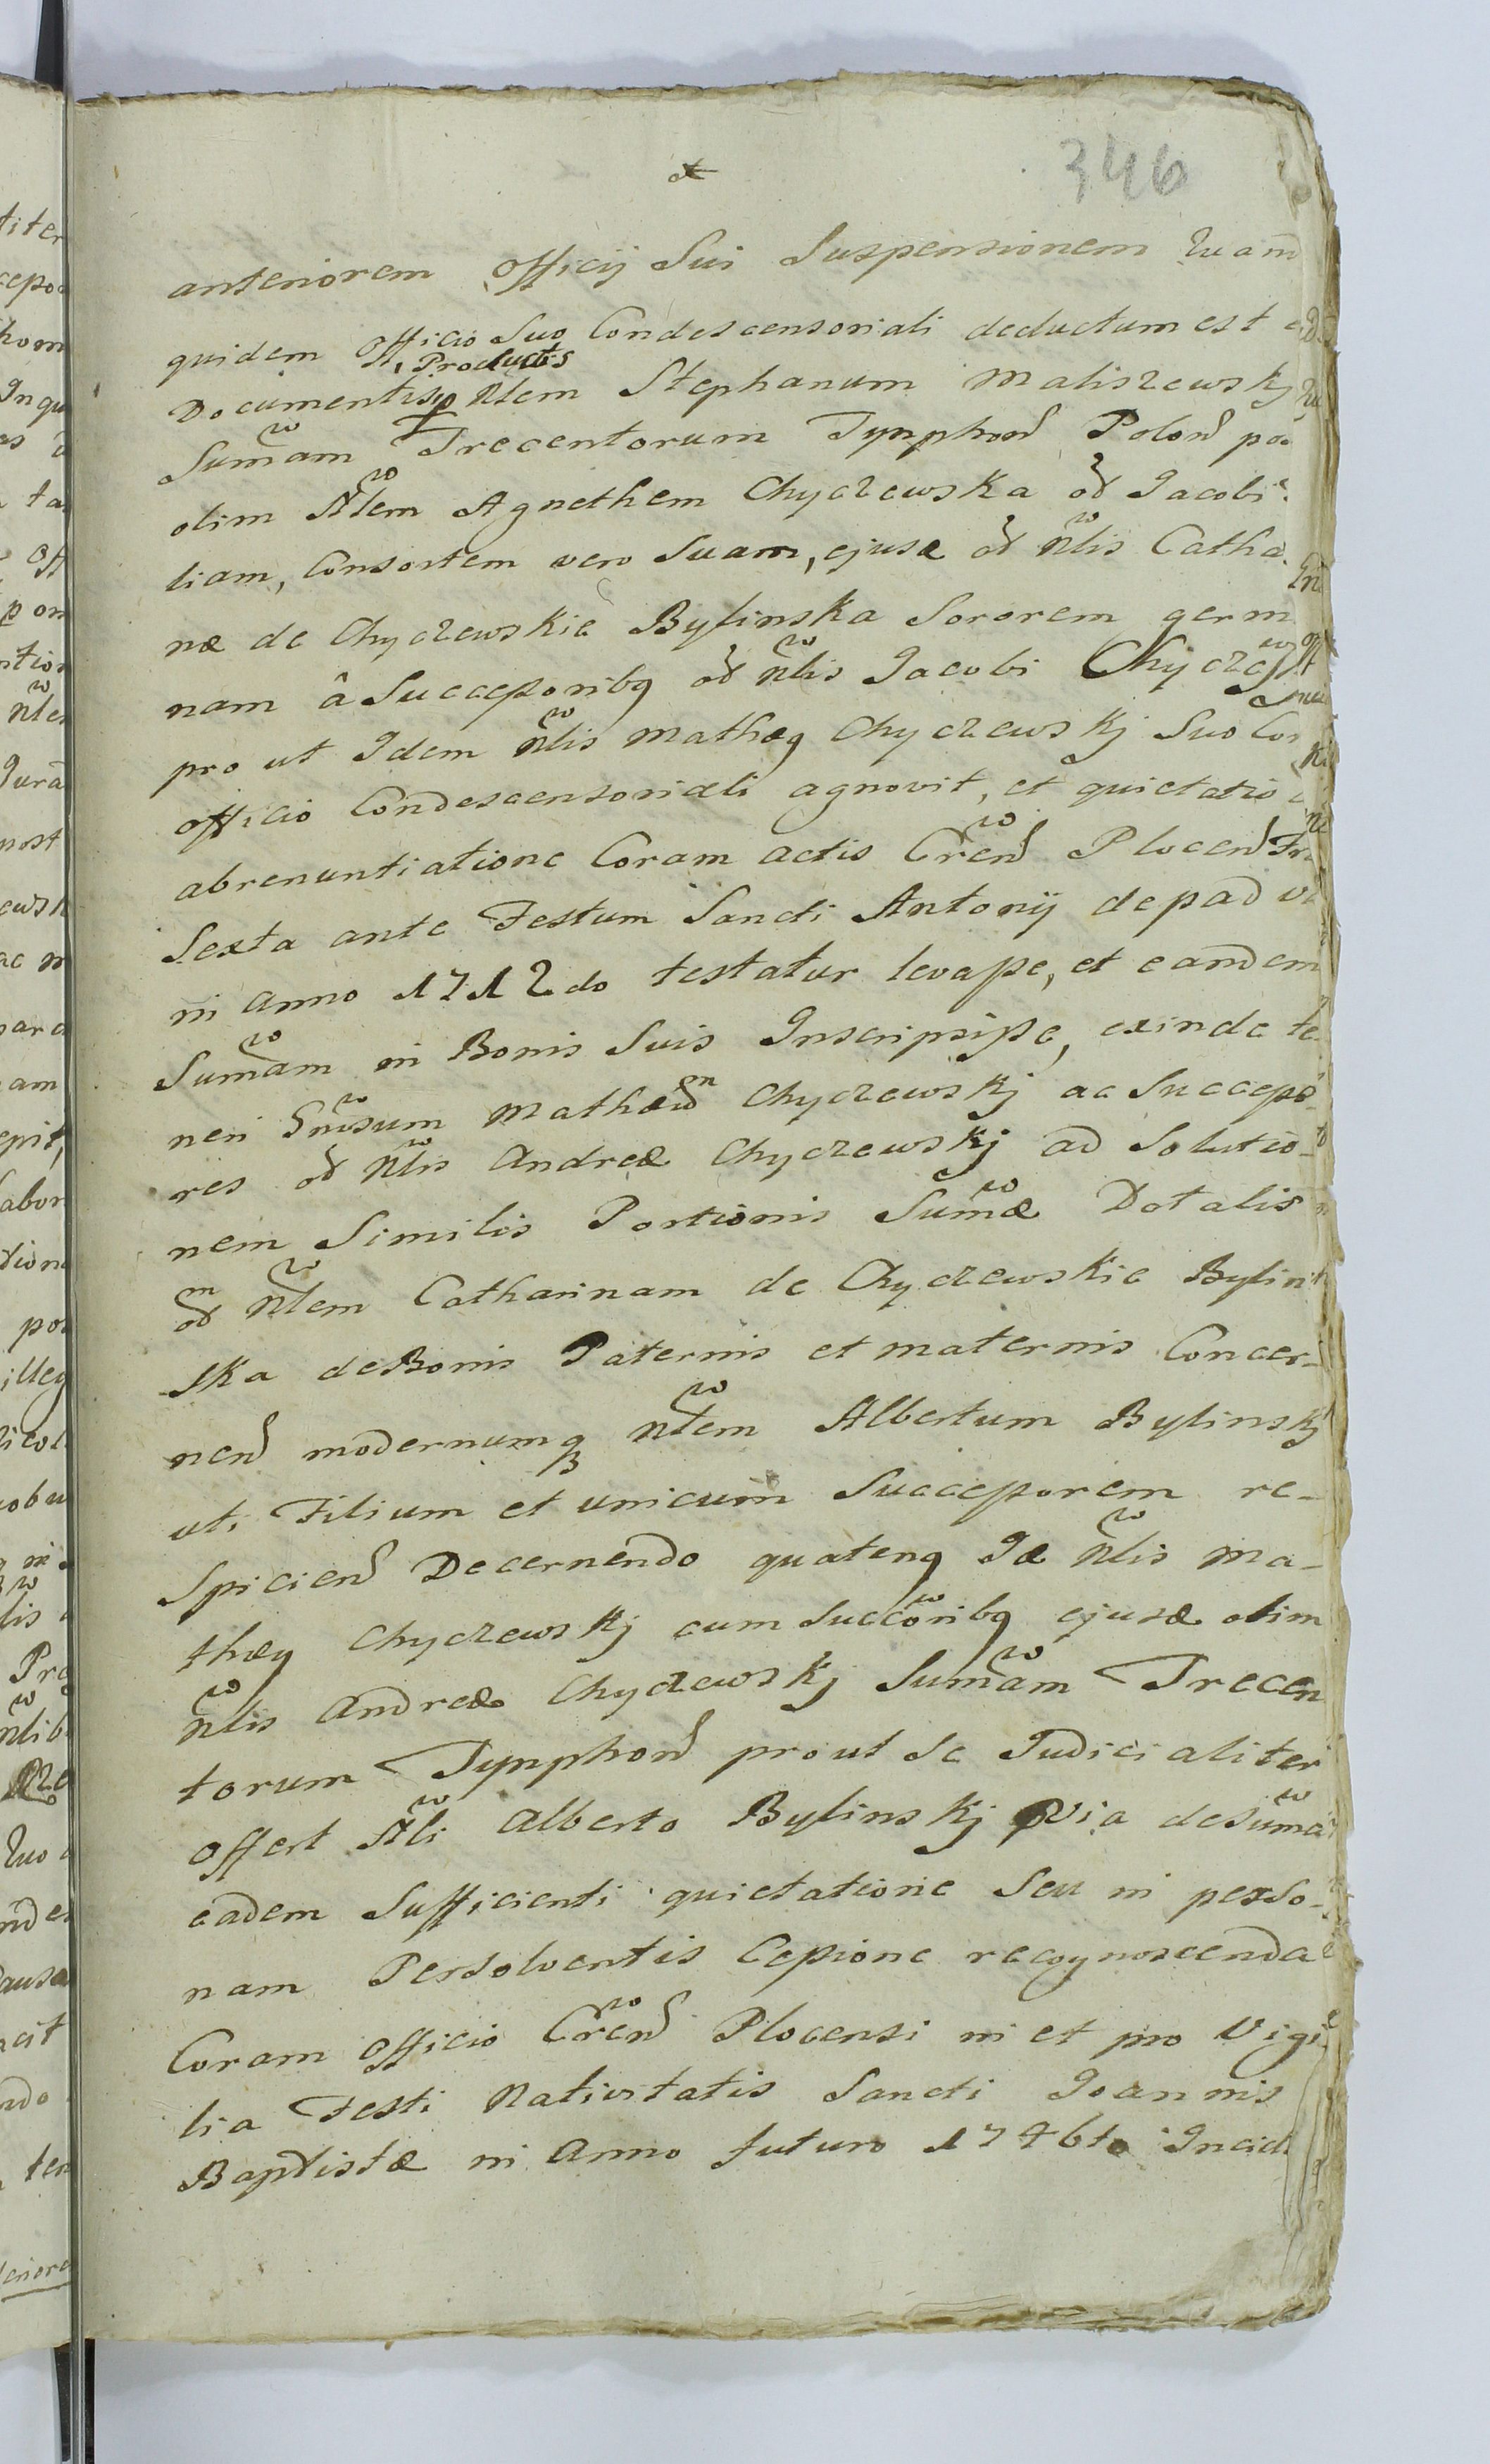 346
anteriorem Officij Sui Suspensionem
quidem Officio Suo Condescensoriali deductum est
Productis
Documentis p Nlem Stephanum Maliszewskj
Summam Trecentorum Tynphond Polond
olim Nlem Agnethem Chyczewska od Jacobi
liam, Consortem vero Suam, ejusd od Nlis Catha
næ de Chyczewskie Bylinska Sororem germ
nam â Successoribq od Nlis Jacobi Chyczewsk
pro ut Idem Nlis Mathæq Chyczewskj Suo
officio Condescensoriali agnovit, et quietatio
abrenuntiatione Coram actis Crend Plocend
Sexta ante Festum Sancti Antonij de pad
in anno 1712do testatur levasse, et eandem
Summam in Bonis Suis Inscripsisse, exinde te
neri Gnosum Mathæum Chyczewskj ac Successo-
res od Nlis Andreæ Chyczewskj ad Solutio-
nem Similis Portionis Summæ Dotalis
od Nlem Catharinam de Chyczewskie Bylin
ska de Bonis Paternis et maternis Concer-
nend modernumq Nlem Albertum Bylinskj
uti Filium et unicum Successorem re-
spiciend Decernendo quatenq Id Nlis Ma-
thæq Chyczewskj cum Succoribq ejusd olim
Nlis Andreæ Chyczewskj Summam Trecen
torum Tynphond prout Se Judicialiter
offert Nli Alberto Bylinskj Via de Summa
eadem Sufficienti quietatione Seu in perso-
nam Persolventis Cessione recognoscenda
Coram Officio Crend Plocensi in et pro Vigi
lia Festi Nativitatis Sancti Joannis
Baptistæ in Anno futuro 1746to Incid